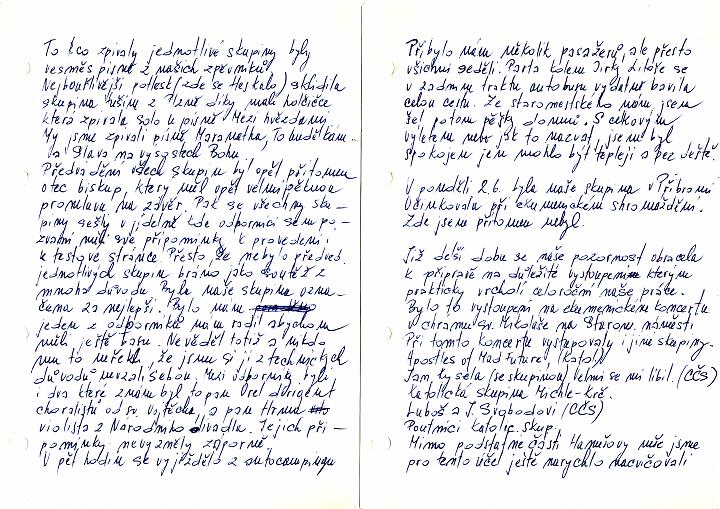 To co zpívaly jednotlivé skupiny byly
vesměs písně z našich zpěvníků.
Nejbouřlivější potlest (zde se tleskalo) sklidila
skupina a díky malé holčičce
která zpívala solo u písně Mezi hvězdami
My jsme zpívali písně Maranatha, To budět kám..
va Sláva na výsostech Bohu
Předvádění všech skupin byl opět přítomen
otec biskup, který měl opět velmi pěknou
promluvu na závěr. Pak se všechny sku-
piny sešly v jídelně kde odborníci sem po-
zvaní měli své připomínky k provedení i
k textové stránce. Přesto, že nebylo předved.
jednotlivých skupin bráno jako soutěž z
mnoha důvodu. Byla naše skupina ozna-
čena za nejlepší. Bylo nám
jeden z odborníků nám radil abychom
měli ještě basu. Nevěděl totiž a nikdo
mu to neřekl, že jsme si ji z technických
důvodů nevzali sebou. Mezi odborníky byli
i dva které znám byl to pan Orel dirigent
choralistů od sv. Vojtěcha, a pan Hrma
violista z Národního divadla. Jejich při-
pomínky nevyzněly záporně.
V pět hodin se vyjíždělo z autocampingu
Přibylo nám několik pasažerů, ale přesto
všichni seděli. Parta kolem Jirky se
v zadním traktu autobusu vydatně bavila
celou cestu. Ze staroměstského nám. jsem
šel potom pěšky domů. S celkovým
výletem nebo jak to nazvat, jsem byl
spokojen jen mohlo být tepleji a bez deště.
V pondělí 2.6. byla naše skupina v Příbrami
Účinkovala při ekumenickém shromáždění.
Zde jsem přítomen nebyl.
Již delší dobu se naše pozornost obracela
k přípravě na důležité vystoupení kterým
prakticky vrcholí celoroční naše práce.
Bylo to vystoupení na ekumenickém koncertu
v chrámu sv. Mikuláše na Starom. náměstí
Při tomto koncertu vystupovaly i jiné skupiny.
Apostles of Mad Future (Katol)
Jam. Kysela (se skupinou) velmi se mi líbil. (CČS)
Katolická skupina Michle-Krč.
Luboš a J. Svobodovi (CČS)
Poutníci Katolic. skup.
Mimo podstatné části Hanušovy mše jsme
pro tento účel ještě narychlo nacvičovali